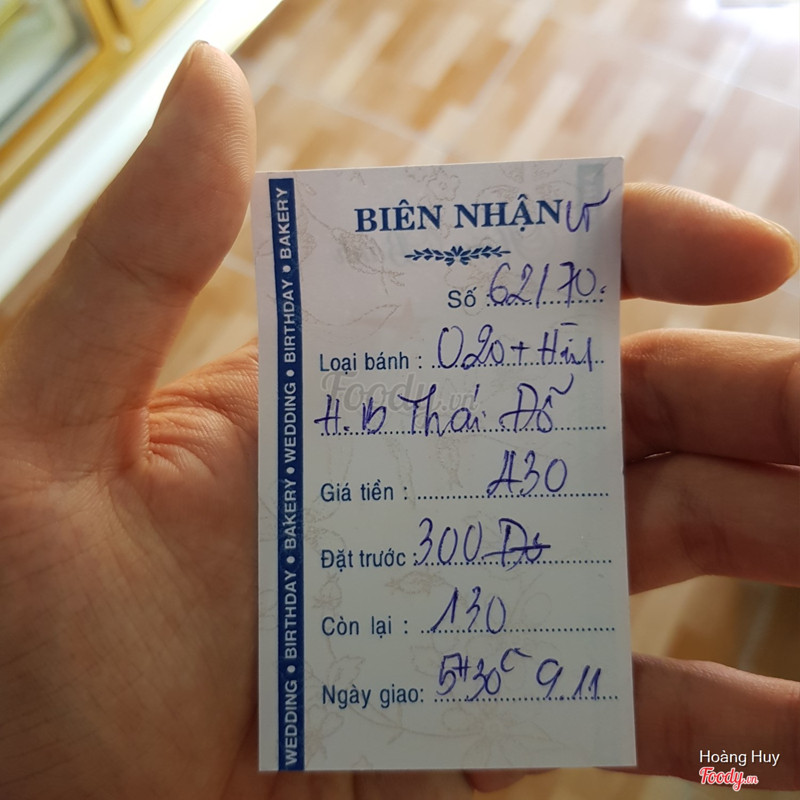 BIÊN NHẬN
Số : 62170.
Loại bánh : O20 +
Thái Đỗ
Giá tiền : 430
Đặt trước : 300
Còn lại : 130
Ngày giao: 5H30 C 9.11
WEDDING • BIRTHDAY • BAKERY • WEDDING • BIRTHDAY • BAKERY
Foody.vn
Hoàng Huy
Foody.vn